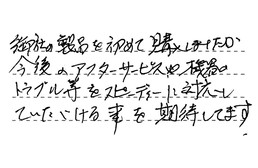 御社の製品を初めて購入しましたが
今後のアフターサービスや機器の
トラブル等をスピーディーに対応し
ていただける事を期待してます